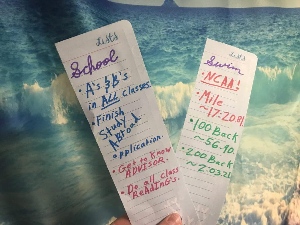 Lists
School
• A's & B's
in ALL classes.
• Finish
Study
Abroad
application.
• Get to Know
ADVISOR.
• Do all class
Readings.
Lists
Swim
• NCAA!
• Mile
~17:20
• 100 Back
~56.90
• 200 Back
~2:03.2